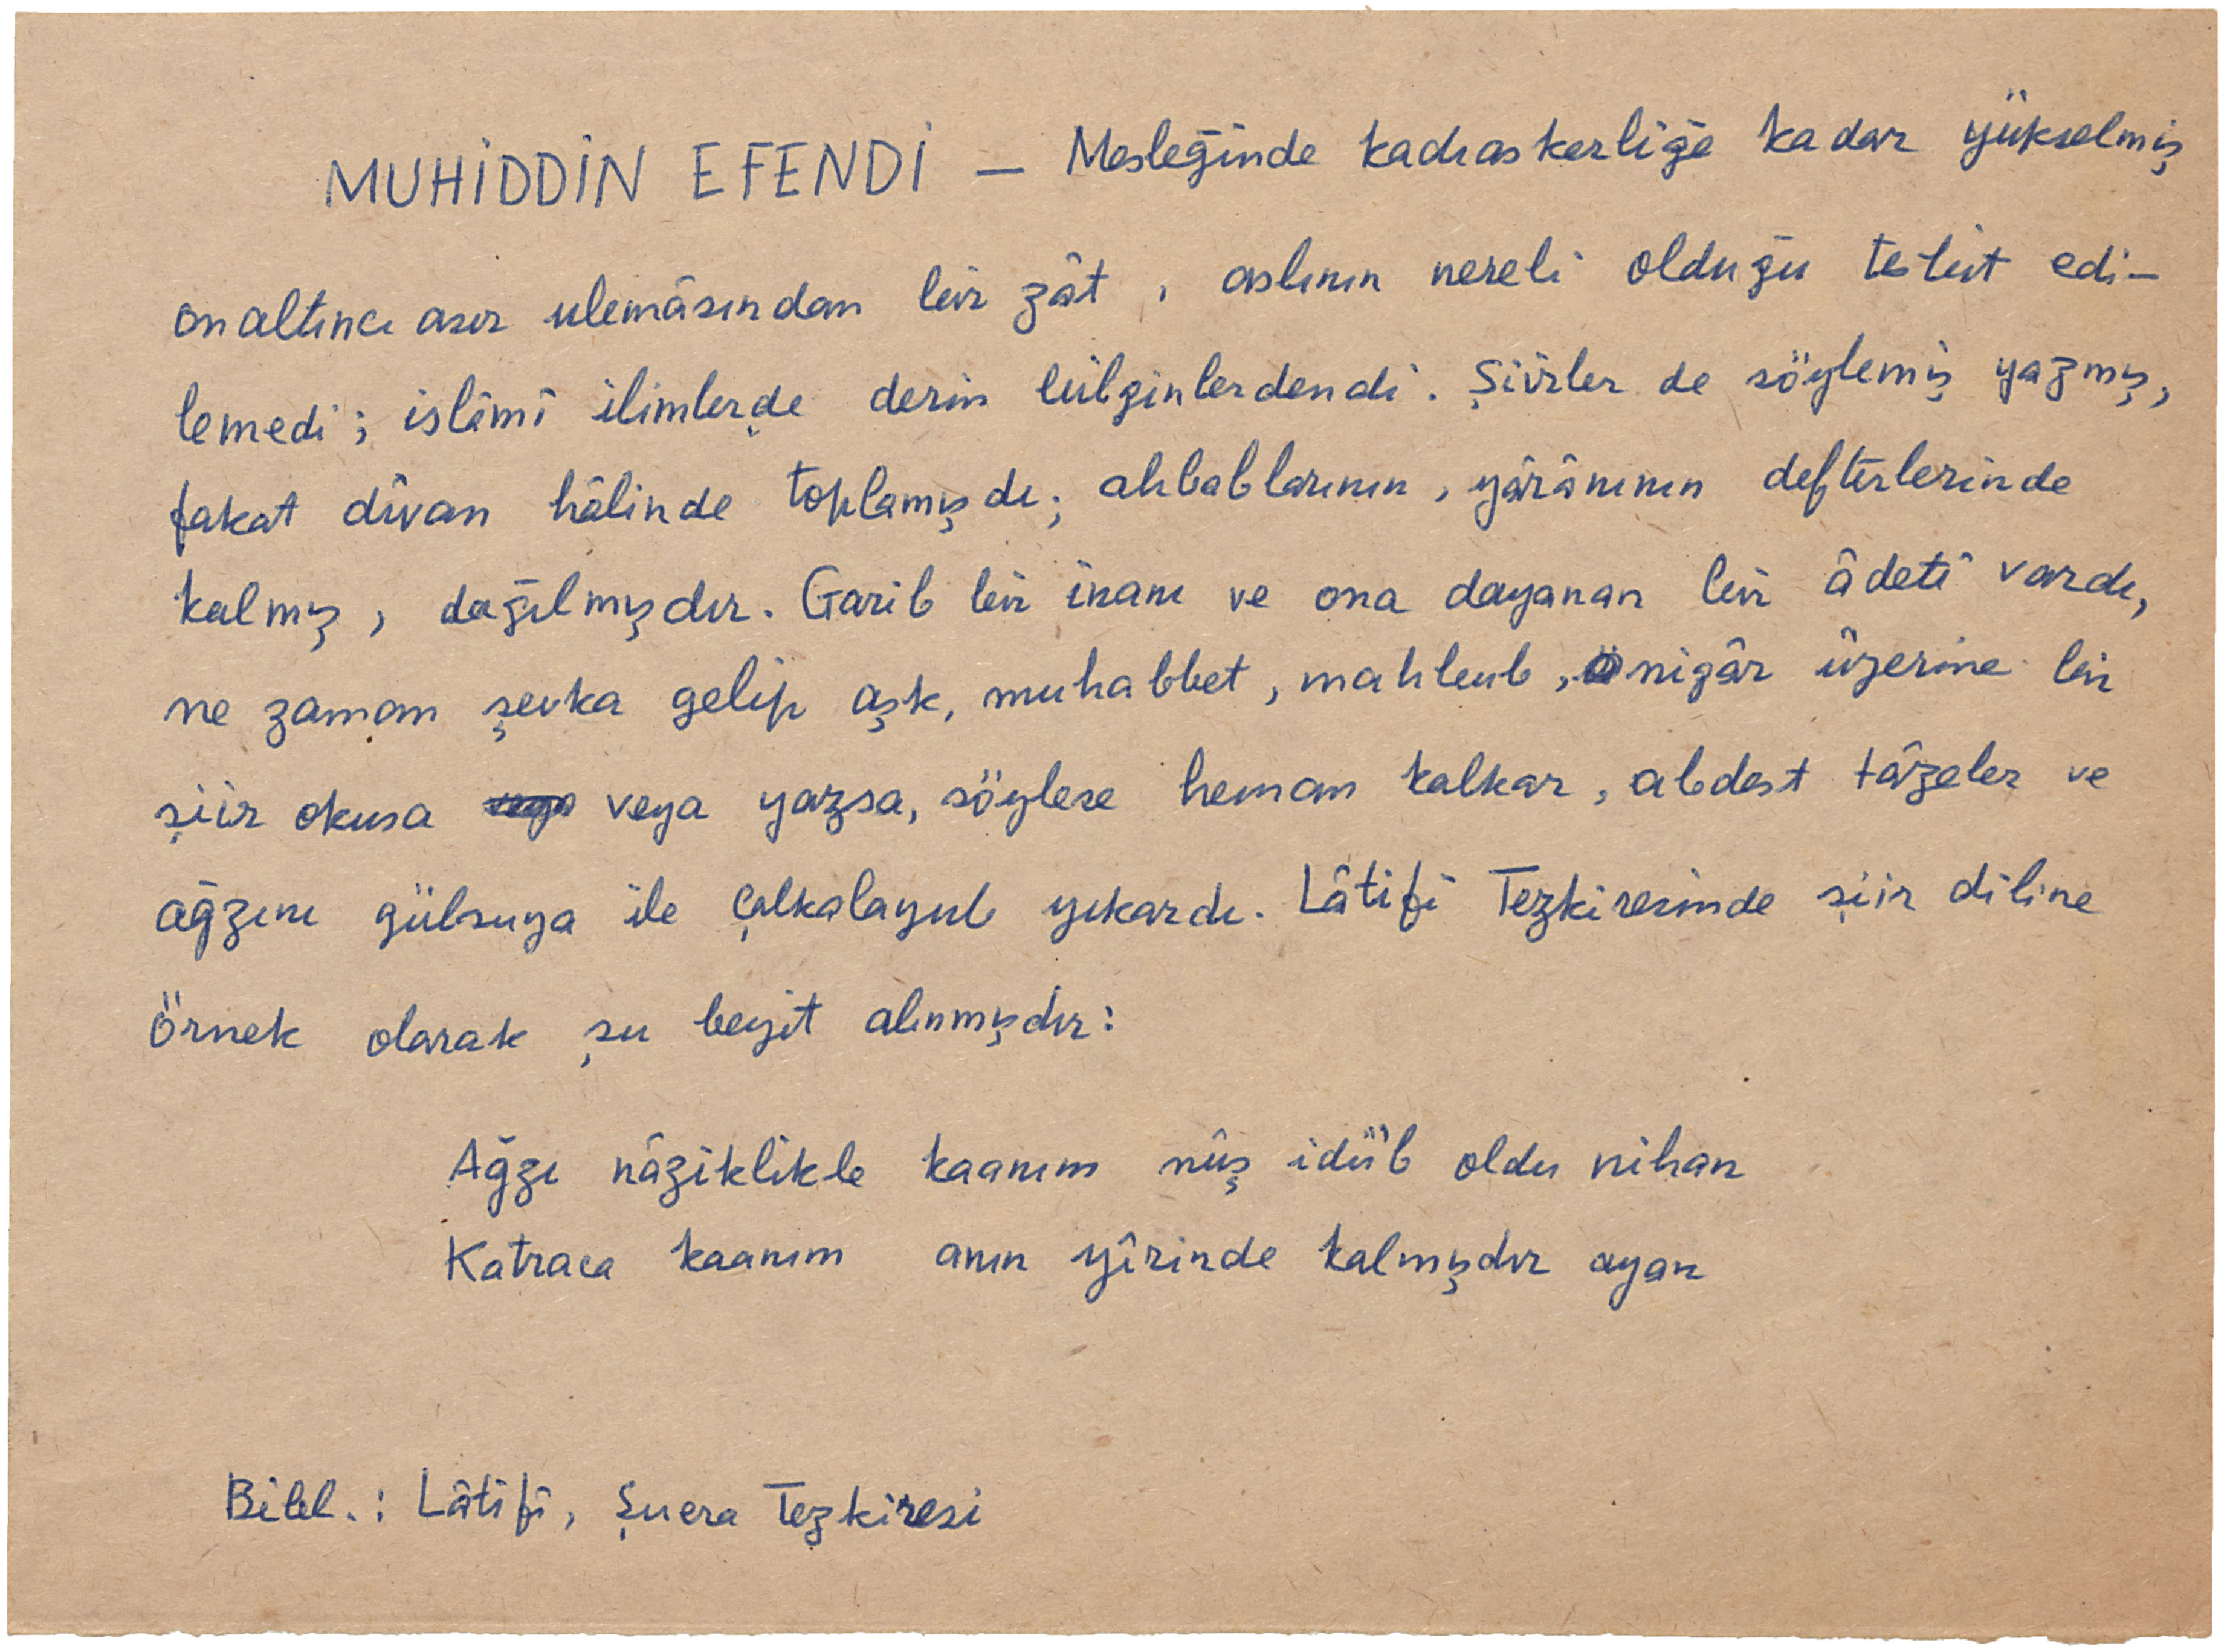 MUHİDDİN EFENDİ — Mesleğinde kadıaskerliğe kadar yükselmiş
onaltıncı asır ulemâsından bir zât, aslının nereli olduğu tesbit edi-
lemedi; islâmî ilimlerde derin bilginlerdendi. Şiirler de söylemiş yazmış,
fakat dîvan hâlinde toplamışdı; ahbablarının, yârânının defterlerinde
kalmış, dağılmışdır. Garib bir inanı ve ona dayanan bir âdeti vardı,
ne zaman şevka gelip aşk, muhabbet, mahbub, nigâr üzerine bir
şiir okusa veya yazsa, söylese heman kalkar, abdest tâzeler ve
ağzını gülsuya ile çalkalayub yıkardı. Lâtifi Tezkiresinde şiir diline
örnek olarak şu beyit alınmışdır:
Ağzı nâziklikle kaanım nûş idüb oldu nihan
Katraca kaanım anın yîrinde kalmışdır ayan
Bibl.: Lâtifî, Şuera Tezkiresi